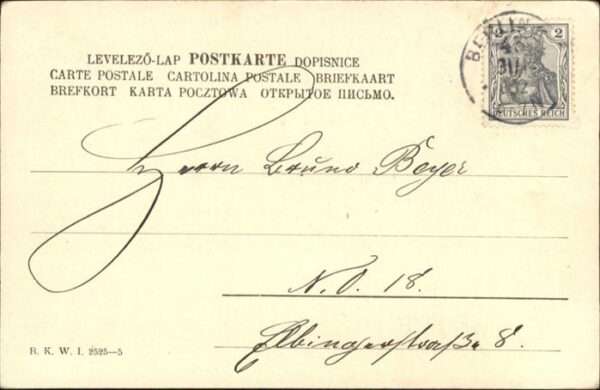 LEVELEZŐ-LAP POSTKARTE DOPISNICE
CARTE POSTALE CARTOLINA POSTALE BRIEFKAART
BREFKORT KARTA POCZTOWA ОТКРЫТОЕ ПИСЬМО.
BERLIN
2 2
DEUTSCHES REICH
Herrn Bruno Beyer
N.O. 18.
Elbingerstraße 8.
B. K. W. I. 2525—5